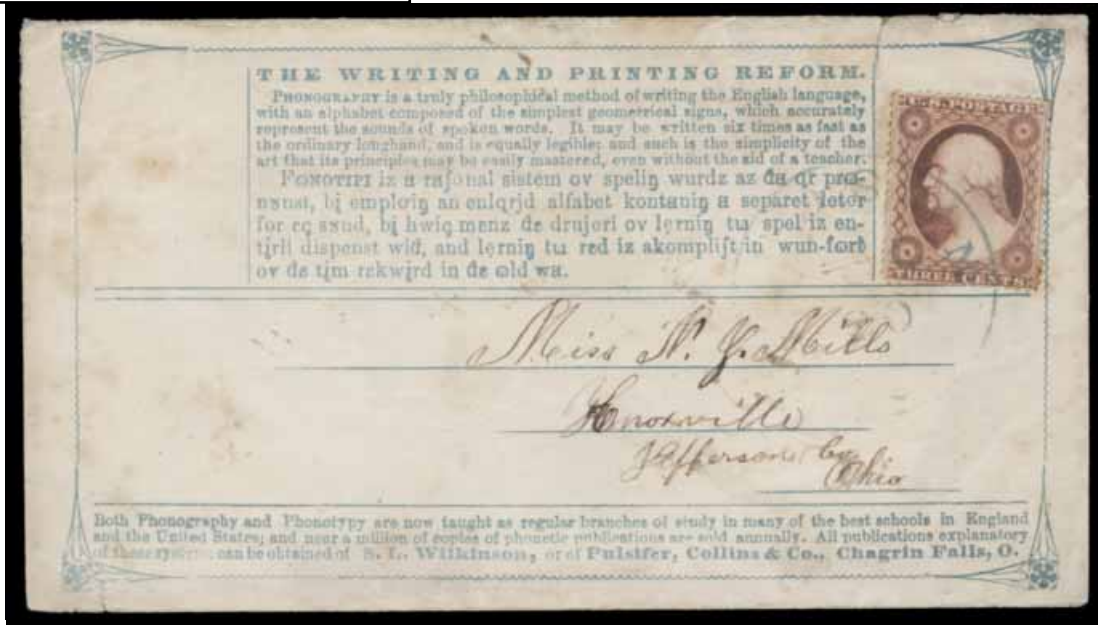 THE WRITING AND PRINTING REFORM.
PHONOGRAPHY is a truly philosophical method of writing the English language,
with an alphabet composed of the simplest geometrical signs, which accurately
represent the sounds of spoken words. It may be written six times as fast as
the ordinary longhand, and is equally legible; and such is the simplicity of the
art that its principles may be easily mastered, even without the aid of a teacher.
FONOTIPI iz a raʃonal sistem ov speliŋ wurdz az
bį emploiŋ an alfabet kontaniŋ a separet
for menz ov lɛrniŋ tu spel iz en-
dispenst and lɛrniŋ tu red iz in
ov in old wa.
U.S. POSTAGE
THREE CENTS
Miss N. J. Mills
Knoxville
Jefferson Co
Ohio
Both Phonography and Phonotypy are now taught as regular branches of study in many of the best schools in England
and the United States; and near a million of copies of phonetic publications are sold annually. All publications explanatory
of these systems can be obtained of S. L. Wilkinson, or of Pulsifer, Collins & Co., Chagrin Falls, O.